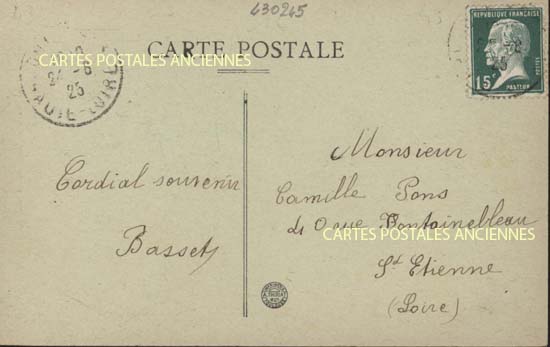 430245
CARTE POSTALE
CARTES POSTALES ANCIENNES
24 - 8
25
LOIRE
REPUBLIQUE FRANÇAISE
15c
POSTES
PASTEUR
Cordial souvenir
Basset
Monsieur
Camille Pons
rue Fontainebleau
CARTES POSTALES ANCIENNES
St Etienne
(Loire)